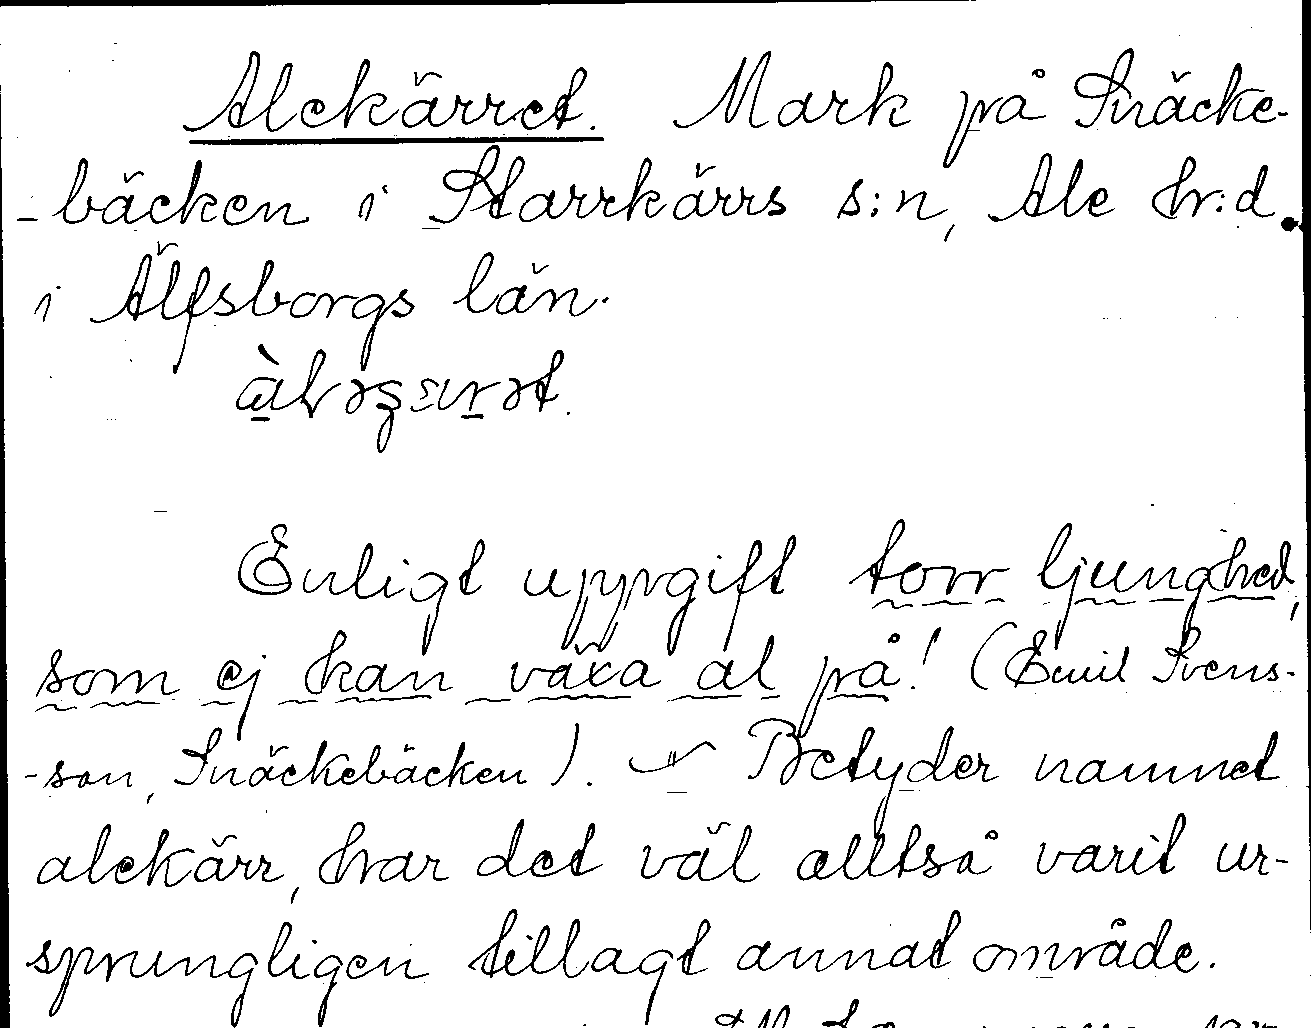 Alekärret. Mark på Snäcke-
-bäcken i Starrkärrs s:n, Ale hr:d
i Älfsborgs län.
Enligt uppgift torr ljunghed,
som ej kan växa al på! (Emil Svens-
-son, Snäckebäcken). Betyder namnet
alekärr, har det väl alltså varit ur-
sprungligen tillagt annat område.